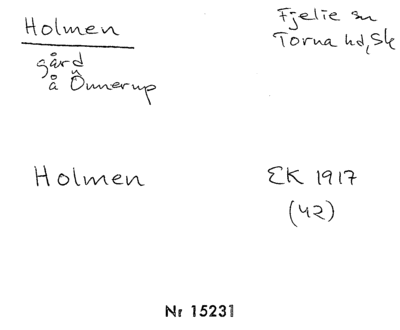 Holmen
Fjelie sn
Torna hd, Sk
gård
å Önnerup
Holmen
EK 1917
(42)
Nr 15231